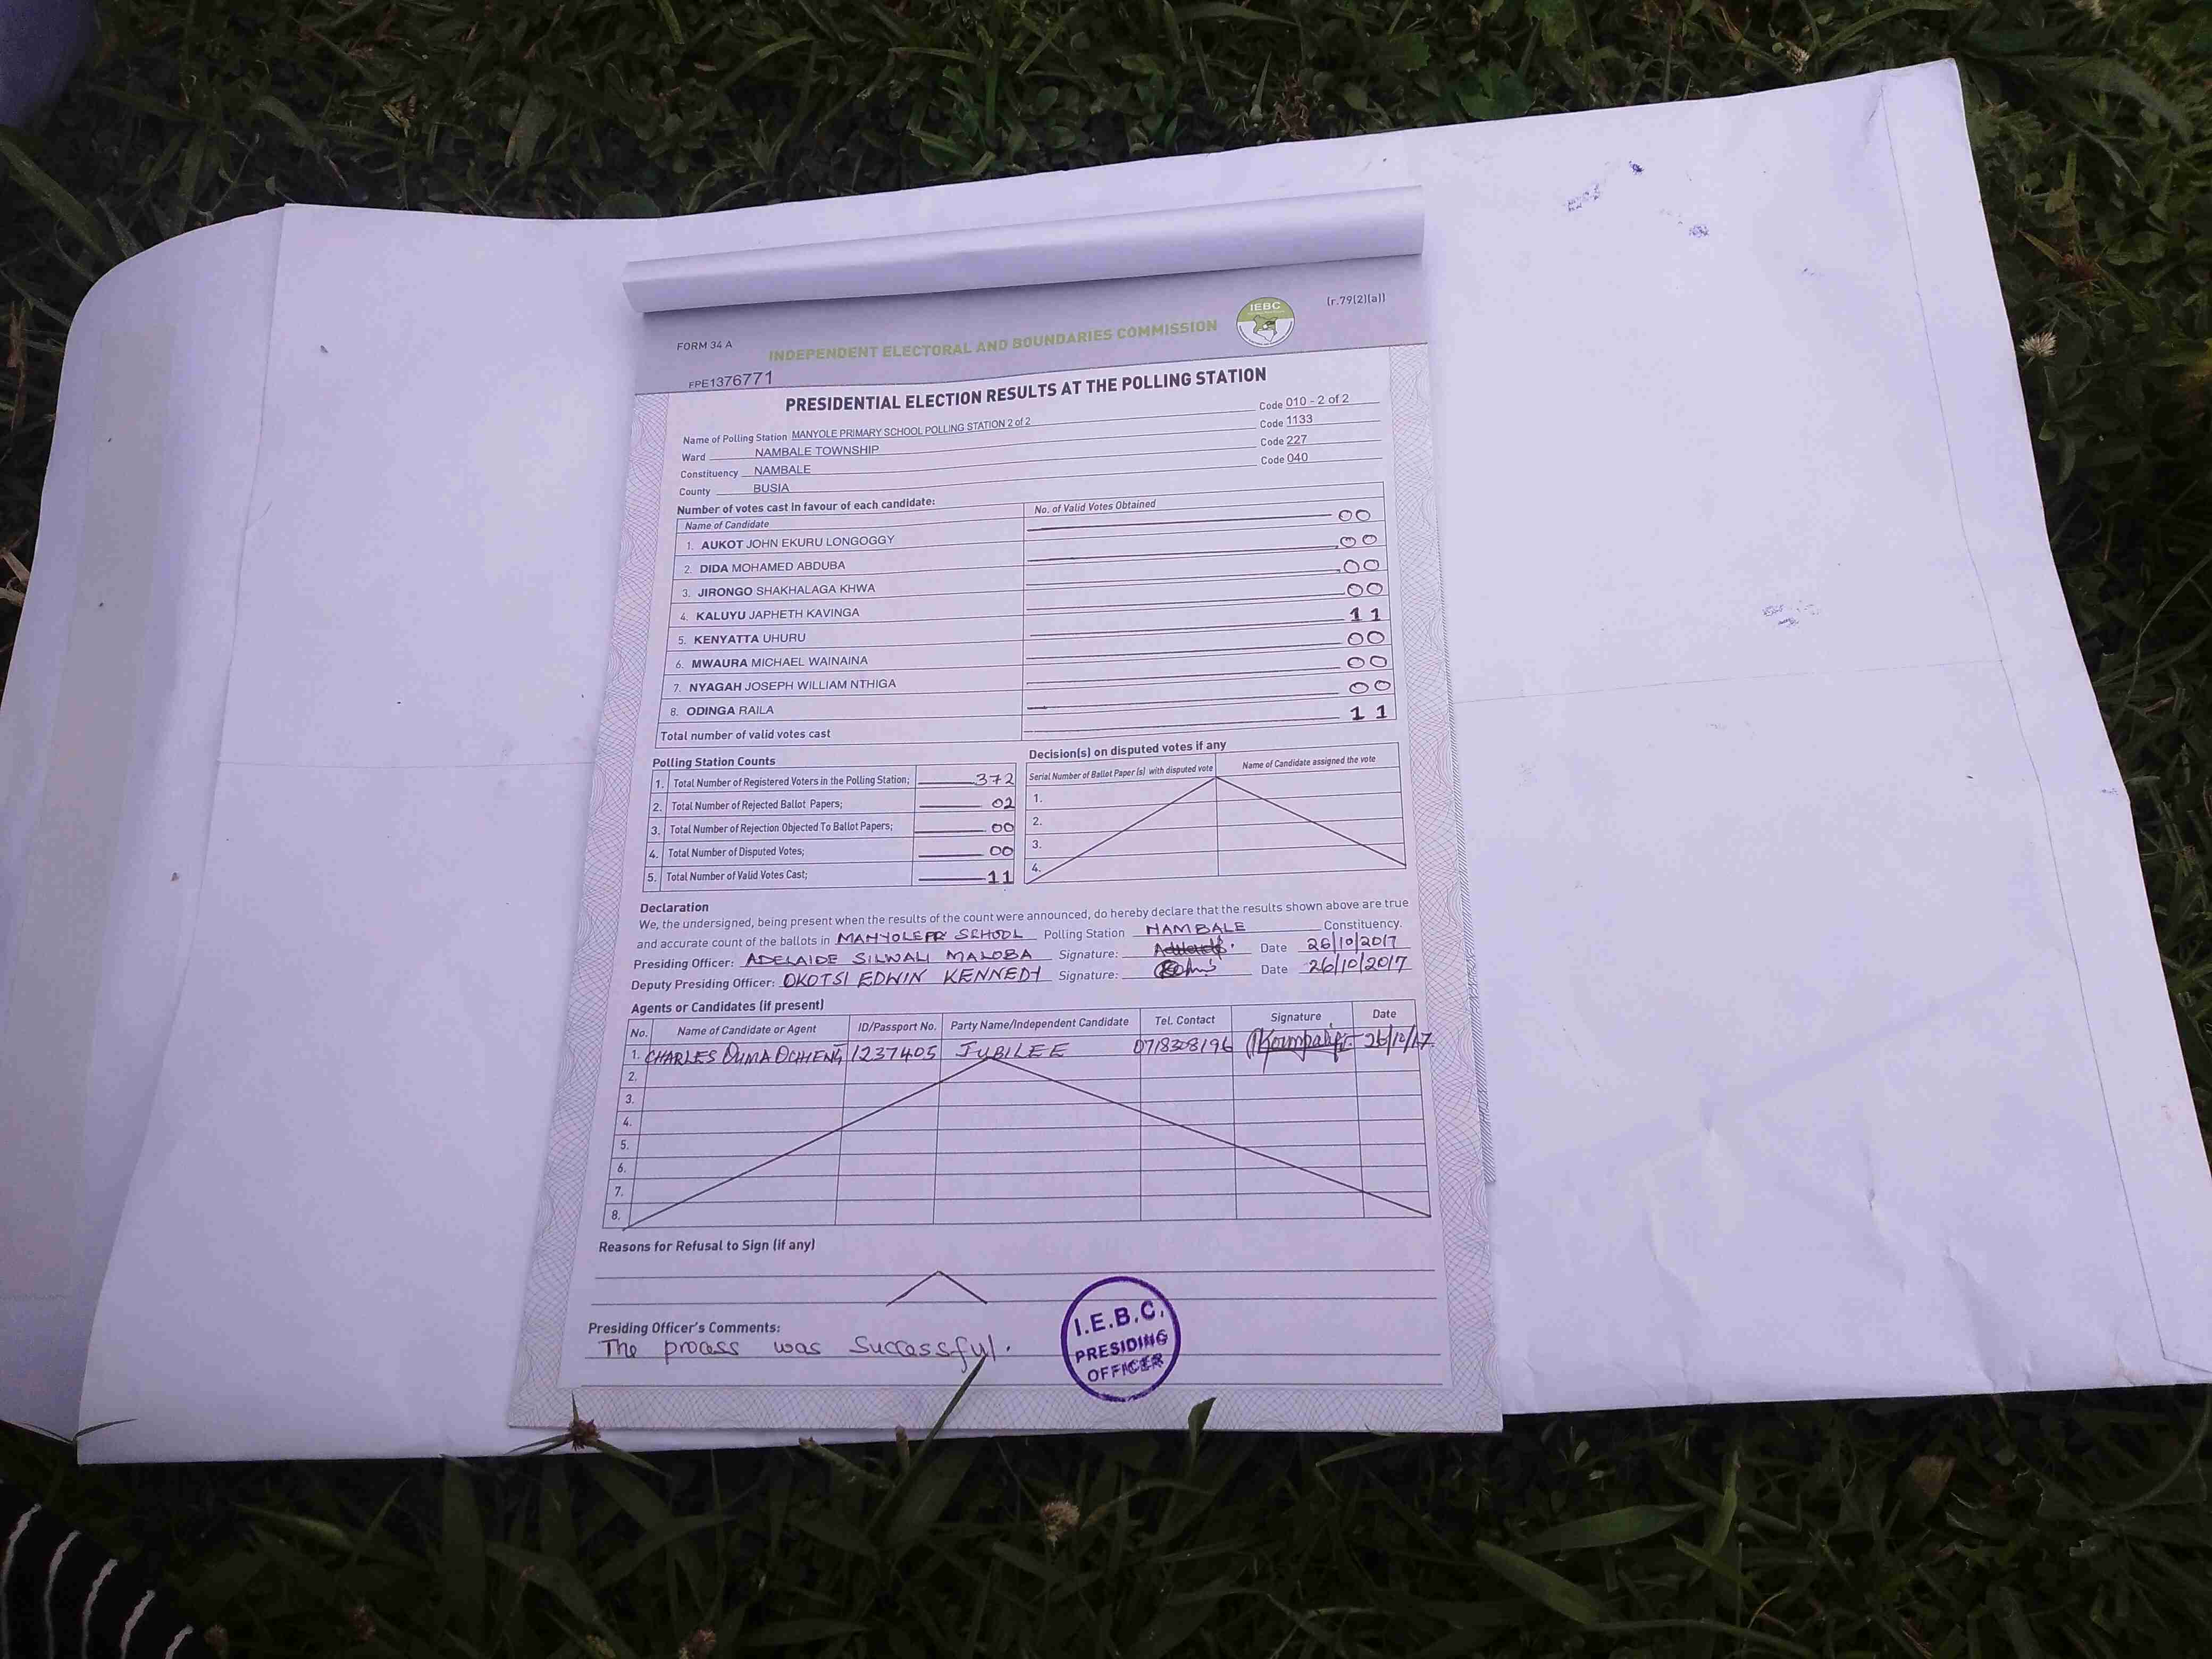 (r.79(2)(a))
IEBC
FORM 34 A
INDEPENDENT ELECTORAL AND BOUNDARIES COMMISSION
FPE1376771
PRESIDENTIAL ELECTION RESULTS AT THE POLLING STATION
Name of Polling Station MANYOLE PRIMARY SCHOOL POLLING STATION 2 of 2 Code 010 - 2 of 2
Ward NAMBALE TOWNSHIP Code 1133
Constituency NAMBALE Code 227
County BUSIA Code 040
Number of votes cast in favour of each candidate:
Name of Candidate No. of Valid Votes Obtained
1. AUKOT JOHN EKURU LONGOGGY 00
2. DIDA MOHAMED ABDUBA 00
3. JIRONGO SHAKHALAGA KHWA 00
4. KALUYU JAPHETH KAVINGA 00
5. KENYATTA UHURU 11
6. MWAURA MICHAEL WAINAINA 00
7. NYAGAH JOSEPH WILLIAM NTHIGA 00
8. ODINGA RAILA 00
Total number of valid votes cast 11
Polling Station Counts
1. Total Number of Registered Voters in the Polling Station; 372
2. Total Number of Rejected Ballot Papers; 02
3. Total Number of Rejection Objected To Ballot Papers; 00
4. Total Number of Disputed Votes; 00
5. Total Number of Valid Votes Cast; 11
Decision(s) on disputed votes if any
Serial Number of Ballot Paper (s) with disputed vote Name of Candidate assigned the vote
1.
2.
3.
4.
Declaration
We, the undersigned, being present when the results of the count were announced, do hereby declare that the results shown above are true
and accurate count of the ballots in MANYOLE PR SCHOOL Polling Station NAMBALE Constituency.
Presiding Officer: ADELAIDE SILWALI MALOBA Signature: Date 26/10/2017
Deputy Presiding Officer: OKOTSI EDWIN KENNEDY Signature: Date 26/10/2017
Agents or Candidates (if present)
No. Name of Candidate or Agent ID/Passport No. Party Name/Independent Candidate Tel. Contact Signature Date
1. CHARLES OUMA OCHIENG 1237405 JUBILEE 0718308196 26/10/17
2.
3.
4.
5.
6.
7.
8.
Reasons for Refusal to Sign (if any)
Presiding Officer's Comments:
The process was Successful.
I.E.B.C.
PRESIDING
OFFICER